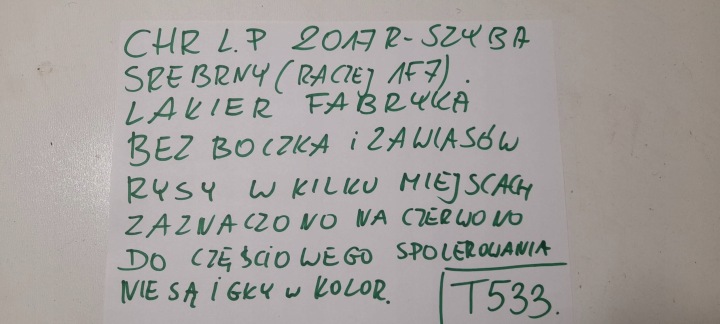 CHR L.P 2017R-SZYBA
SREBRNY (RACZEJ 1F7).
LAKIER FABRYKA
BEZ BOCZKA i ZAWIASÓW
RYSY W KILKU MIEJSCACH
ZAZNACZONO NA CZERWONO
DO CZĘŚCIOWEGO SPOLEROWANIA
NIE SĄ IGKY W KOLOR.
T533.